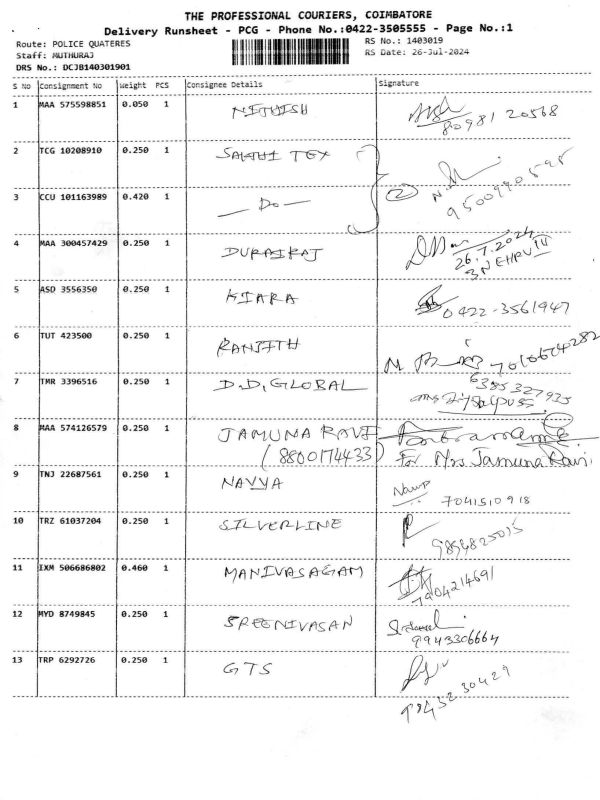 THE PROFESSIONAL COURIERS, COIMBATORE
Delivery Runsheet - PCG - Phone No.:0422-3505555 - Page No.:1
Route: POLICE QUATERES
RS No.: 1403019
Staff: MUTHURAJ
RS Date: 26-Jul-2024
DRS No.: DCJB140301901
S No Consignment No Weight PCS Consignee Details Signature
1 MAA 575598851 0.050 1 NITHISH
80981 20568
2 TCG 10208910 0.250 1 SAKTHI TEX
3 CCU 101163989 0.420 1 — Do — 2
4 MAA 300457429 0.250 1 DURAIRAJ
26.7.2024
5 ASD 3556350 0.250 1 KIARA 0422-3561947
6 TUT 423500 0.250 1 RANJITH
7 TMR 3396516 0.250 1 D.D, GLOBAL 6385327925
8 MAA 574126579 0.250 1 JAMUNA RAVI
(8800174433) For Mrs Jamuna Ravi.
9 TNJ 22687561 0.250 1 NAVYA
7041510918
10 TRZ 61037204 0.250 1 SILVERLINE
11 IXM 506686802 0.460 1 MANIVASAGAM
7904214691
12 MYD 8749845 0.250 1 SREENIVASAN
9943306664
13 TRP 6292726 0.250 1 GTS